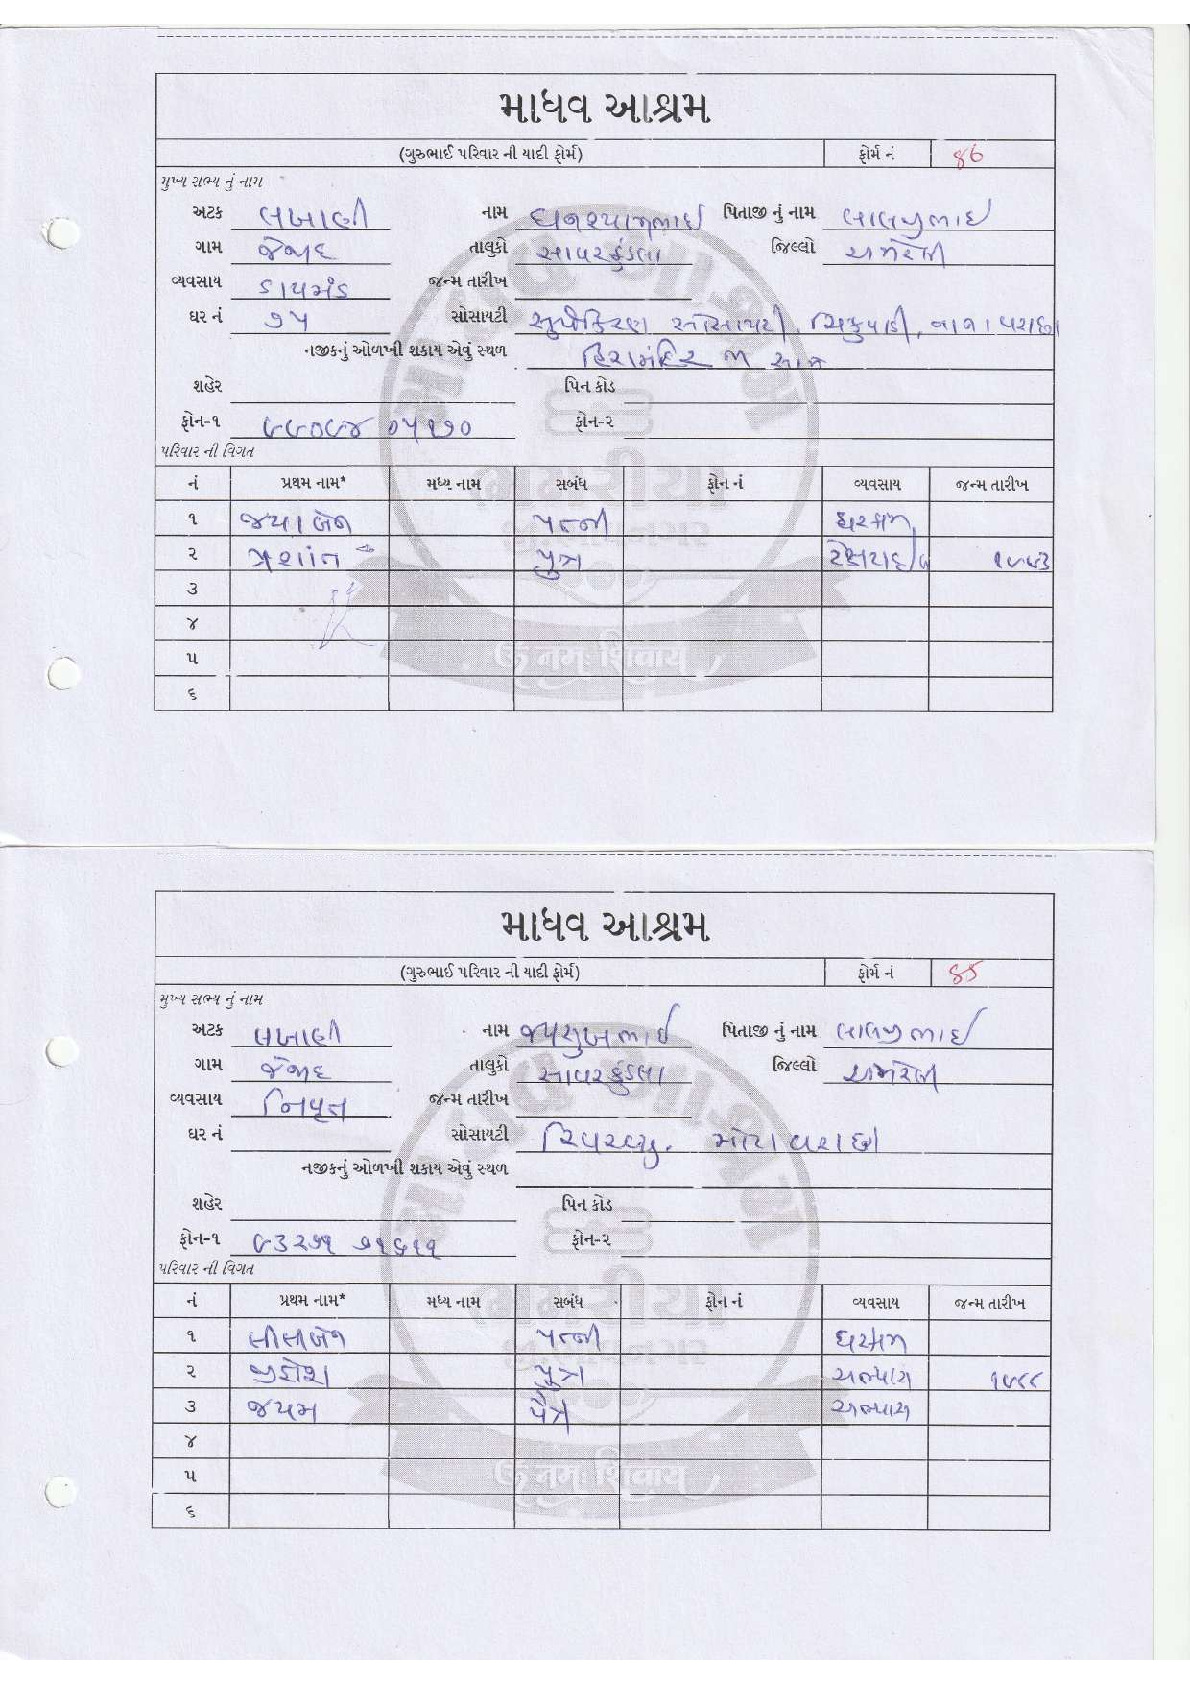 માધવ આશ્રમ
(ગુરુભાઈ પરિવાર ની યાદી ફોર્મ) ફોર્મ નં ૪૬
મુખ્ય સભ્ય નું નામ
અટક લખાણી નામ ઘનશ્યામભાઈ પિતાજી નું નામ લાલજીભાઈ
ગામ જેજાદ તાલુકો સાવરકુંડલા જિલ્લો અમરેલી
વ્યવસાય ડાયમંડ જન્મ તારીખ
ઘર નં ૭૫ સોસાયટી સોસાયટી, ચિકુવાડી, નાના વરાછા
નજીકનું ઓળખી શકાય એવું સ્થળ હિરામંદિર
શહેર પિન કોડ
ફોન-૧ ૯૯૦૯૪ ૦૫૧૭૦ ફોન-૨
પરિવાર ની વિગત
નં પ્રથમ નામ* મધ્ય નામ સબંધ ફોન નં વ્યવસાય જન્મ તારીખ
૧ જયાબેન પત્ની ઘરકામ
૨ પ્રશાંત પુત્ર ૧૯૯૩
૩
૪
૫
૬
ૐ નમઃ શિવાય
માધવ આશ્રમ
(ગુરુભાઈ પરિવાર ની યાદી ફોર્મ) ફોર્મ નં ૪૫
મુખ્ય સભ્ય નું નામ
અટક લખાણી નામ જયસુખભાઈ પિતાજી નું નામ લાલજીભાઈ
ગામ જેજાદ તાલુકો સાવરકુંડલા જિલ્લો અમરેલી
વ્યવસાય નિવૃત જન્મ તારીખ
ઘર નં સોસાયટી રિવરવ્યુ. મોટા વરાછા
નજીકનું ઓળખી શકાય એવું સ્થળ
શહેર પિન કોડ
ફોન-૧ ૯૩૨૭૧ ૭૧૬૧૧ ફોન-૨
પરિવાર ની વિગત
નં પ્રથમ નામ* મધ્ય નામ સબંધ ફોન નં વ્યવસાય જન્મ તારીખ
૧ લીલાબેન પત્ની ઘરકામ
૨ પુત્ર અભ્યાસ ૧૯૮૮
૩ જયમ પૌત્ર અભ્યાસ
૪
૫
૬
ૐ નમઃ શિવાય